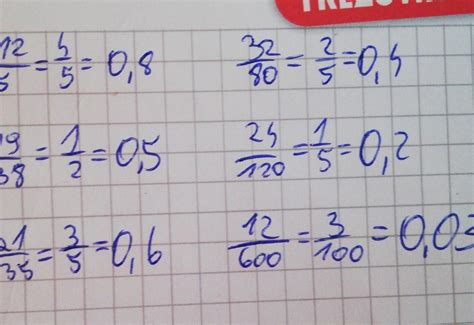 12/5 = 4/5 = 0,8 32/80 = 2/5 = 0,4
9/38 = 1/2 = 0,5 24/120 = 1/5 = 0,2
21/35 = 3/5 = 0,6 12/600 = 3/100 = 0,03